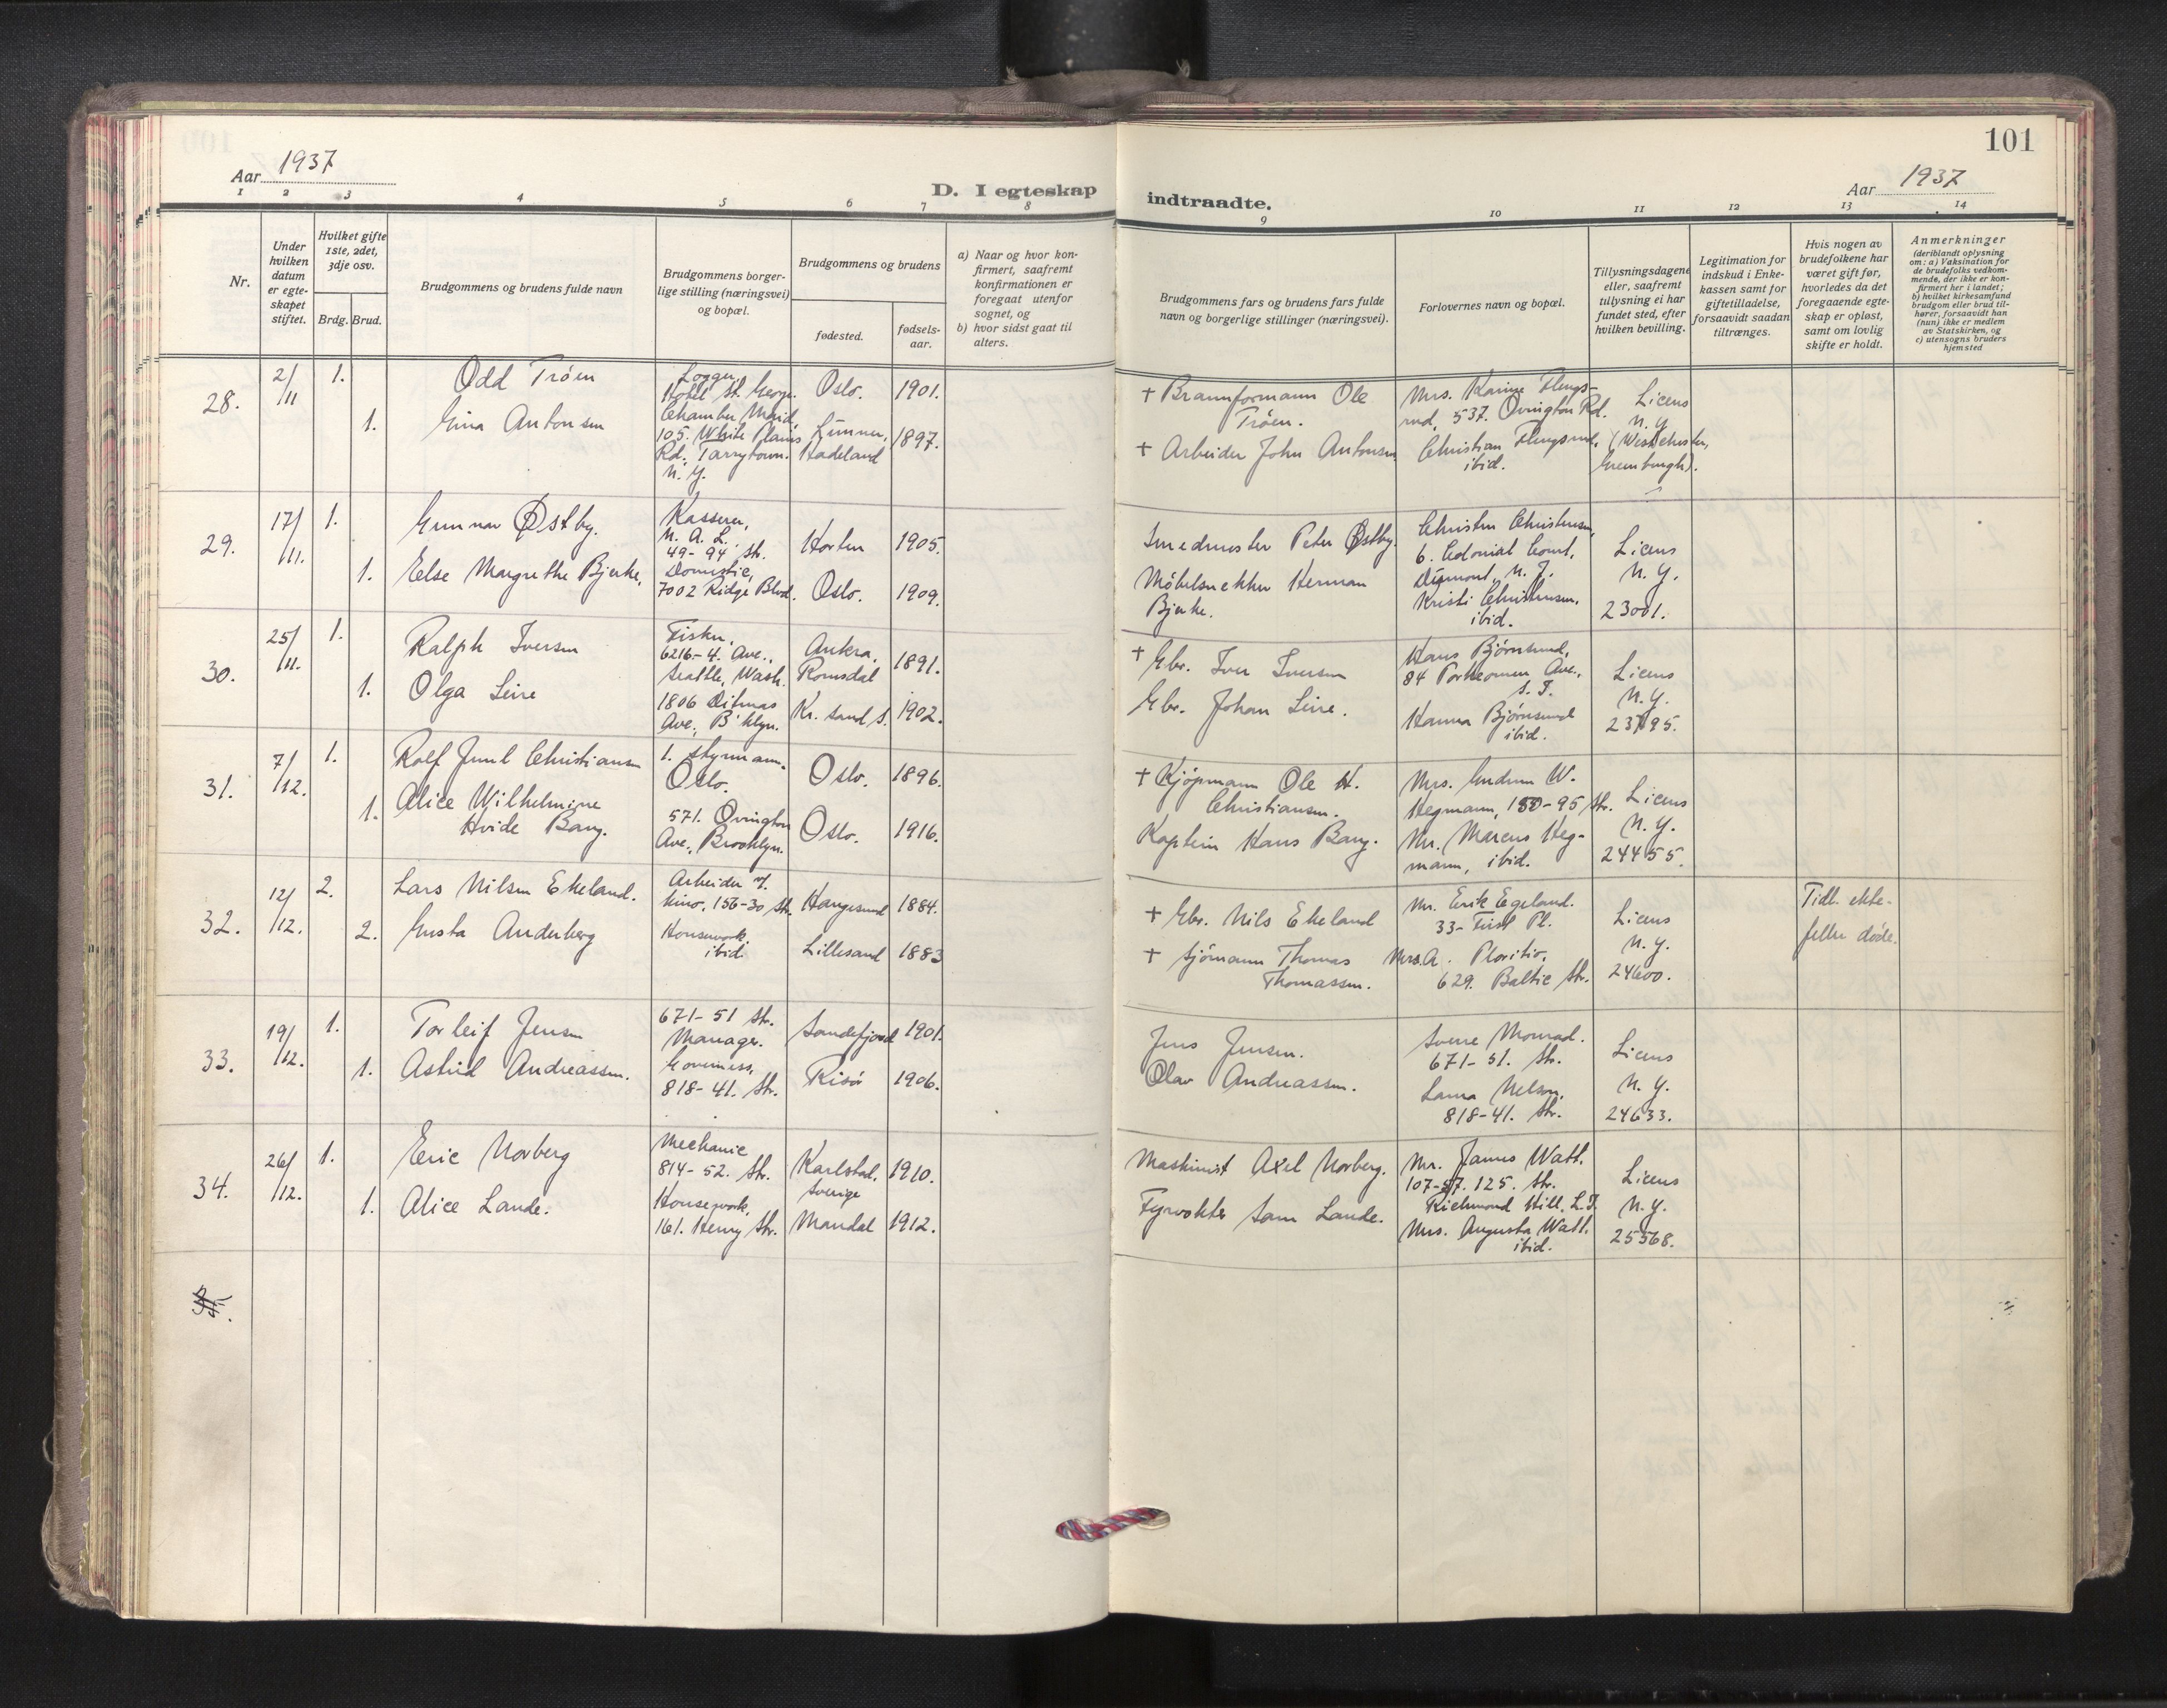 101
Aar 1937
D. I egteskap
indtraadte.
Aar 1937
1 2 3 4 5 6 7 8
9 10 11 12 13 14
Nr.
Under
hvilken
datum
er egte-
skapet
stiftet.
Hvilket gifte
1ste, 2det,
3dje osv.
Brdg. Brud.
Brudgommens og brudens fulde navn
Brudgommens borger-
lige stilling (næringsvei)
og bopæl.
Brudgommens og brudens
fødested.
fødsels-
aar.
a) Naar og hvor kon-
firmert, saafremt
konfirmationen er
foregaat utenfor
sognet, og
b) hvor sidst gaat til
alters.
Brudgommens fars og brudens fars fulde
navn og borgerlige stillinger (næringsvei).
Forlovernes navn og bopæl.
Tillysningsdagene
eller, saafremt
tillysning ei har
fundet sted, efter
hvilken bevilling.
Legitimation for
indskud i Enke-
kassen samt for
giftetilladelse,
forsaavidt saadan
tiltrænges.
Hvis nogen av
brudefolkene har
været gift før,
hvorledes da det
foregaaende egte-
skap er opløst,
samt om lovlig
skifte er holdt.
Anmerkninger
(deriblandt oplysning
om: a) Vaksination for
de brudefolks vedkom-
mende, der ikke er kon-
firmert her i landet;
b) hvilket kirkesamfund
brudgom eller brud til-
hører, forsaavidt han
(hun) ikke er medlem
av Statskirken, og
c) utensogns bruders
hjemsted
28.
2/11
1.
Odd Trøen
Logger,
Hotel St. George
Oslo. 1901.
1. Gina Antonsen
Chamber Maid,
105. White Plains
Rd., Tarrytown.
N. Y.
Gunner,
Hadeland
1897.
+ Brannformann Ole
Trøen.
+ Arbeider John Antonsen
Mrs. Karine Flengs-
rud, 537. Ovington Rd.
Christian Flengsrud,
ibid.
Licens
N. Y.
(Westchester,
Greenburgh).
29.
17/11.
1.
Gunnar Østby.
Kasserer,
N. A. L.
49-94 Str.
Horten 1905.
1. Else Margrethe Bjerke,
Domestic,
7002 Ridge Blvd.
Oslo. 1909.
Smedmester Peter Østby.
Møbelsnekker Herman
Bjerke.
Christen Christensen,
6. Colonial Court,
N. J.
Kristi Christensen,
ibid.
Licens
N. Y.
23001.
30.
25/11.
1.
Ralph Iversen
Fisker,
6216-4. Ave.,
Seattle, Wash.
Aukra,
Romsdal
1891.
1. Olga Leire
1806 Ditmas
Ave., B'klyn.
Kr. sand S. 1902.
+ Gbr. Iver Iversen
Gbr. Johan Leire.
Hans Bjørnsund,
84 Ave.,
S. I.
Hanna Bjørnsund
ibid.
Licens
N. Y.
23795.
31.
7/12.
1.
Rolf Juul Christiansen
1. styrmann.
Oslo.
Oslo. 1896.
1. Alice Wilhelmine
Hvide Bang.
571. Ovington
Ave., Brooklyn.
Oslo. 1916.
+ Kjøpmann Ole H.
Christiansen.
Kaptein Hans Bang.
Mrs. Gudrun W.
Hegmann, 150-95 Str.
Mr. Marcus Heg-
mann, ibid.
Licens
N. Y.
24455.
32.
12/12.
2.
Lars Nilsen Ekeland.
Arbeider v/.
kino, 156-30 Str.
Haugesund 1884.
2. Gusta Anderberg
Housework
ibid.
Lillesand 1883
+ Gbr. Nils Ekeland
+ Sjømann Thomas
Thomassen.
Mr. Erik Egeland.
33- First Pl.
Mrs. A.
629. Baltic Str.
Licens
N. Y.
24600.
Tidl. ekte-
feller døde.
33.
19/12.
1.
Torleif Jensen
671-51 Str.
Manager.
Sandefjord 1901.
1. Astrid Andreassen.
Governess,
818-41. Str.
Risør 1906.
Jens Jensen.
Olav Andreassen.
Sverre Monrad.
671-51. Str.
Laura Nelson,
818-41. Str.
Licens
N. Y.
24633.
34.
26/12.
1.
Eric Norberg
Mechanic
814-52. Str.
Karlstad,
Sverige
1910.
1. Alice Lande.
Housework,
161. Henry Str.
Mandal 1912.
Maskinist Axel Norberg.
Fyrvokter Sam Lande.
Mr. James Watt.
107-57. 125. Str.
Richmond Hill, L.I.
Mrs. Augusta Watt.
ibid.
Licens
N. Y.
25568.